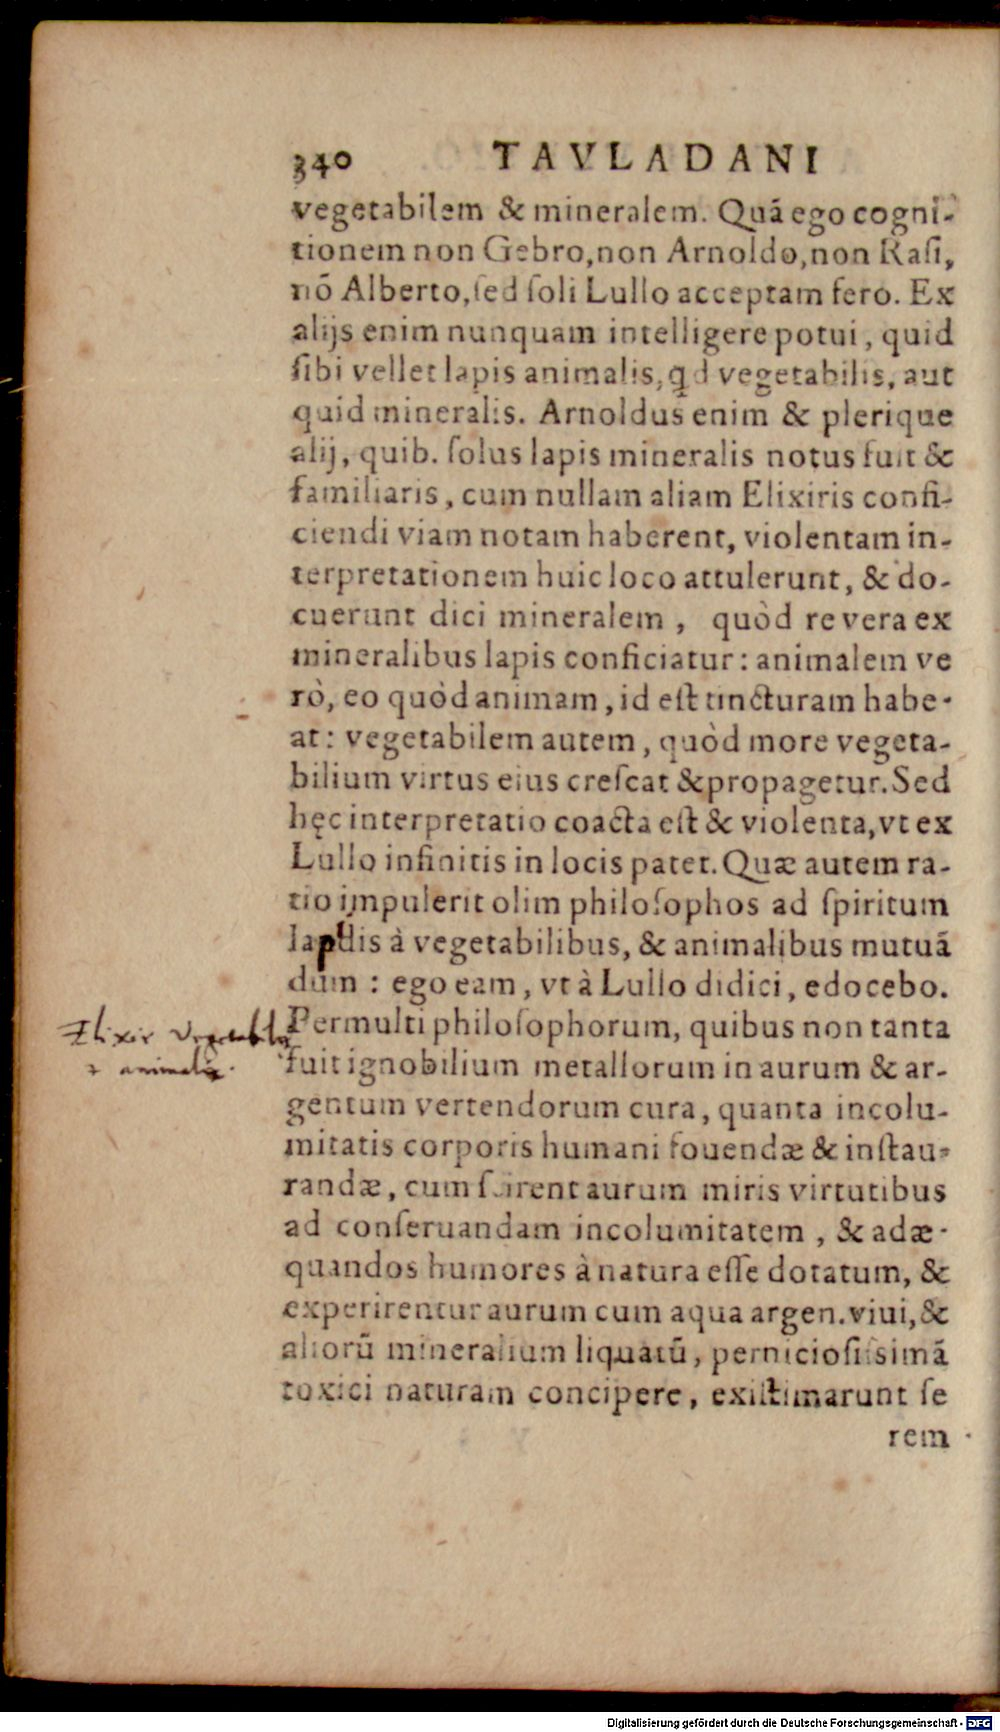 340 TAVLADANI
vegetabilem & mineralem. Quã ego cogni-
tionem non Gebro, non Arnoldo, non Rasi,
nõ Alberto, ſed ſoli Lullo acceptam fero. Ex
alijs enim nunquam intelligere potui, quid
ſibi vellet lapis animalis, qd vegetabilis, aut
quid mineralis. Arnoldus enim & plerique
alij, quib. ſolus lapis mineralis notus fuit &
familiaris, cum nullam aliam Elixiris confi-
ciendi viam notam haberent, violentam in-
terpretationem huic loco attulerunt, & do-
cuerunt dici mineralem, quòd re vera ex
mineralibus lapis conficiatur: animalem ve
rò, eo quòd animam, id eſt tincturam habe-
at: vegetabilem autem, quòd more vegeta-
bilium virtus eius creſcat & propagetur. Sed
hęc interpretatio coacta eſt & violenta, vt ex
Lullo infinitis in locis patet. Quæ autem ra-
tio impulerit olim philoſophos ad ſpiritum
lapidis à vegetabilibus, & animalibus mutuã
dum: ego eam, vt à Lullo didici, edocebo.
Elixir vegetabilis
& animalis.
Permulti philoſophorum, quibus non tanta
fuit ignobilium metallorum in aurum & ar-
gentum vertendorum cura, quanta incolu-
mitatis corporis humani fouendæ & inſtau-
randæ, cum ſcirent aurum miris virtutibus
ad conſeruandam incolumitatem, & adæ-
quandos humores à natura eſſe dotatum, &
experirentur aurum cum aqua argen. viui, &
aliorũ mineralium liquatũ, pernicioſiſsimã
toxici naturam concipere, exiſtimarunt ſe
rem
Digitalisierung gefördert durch die Deutsche Forschungsgemeinschaft - DFG